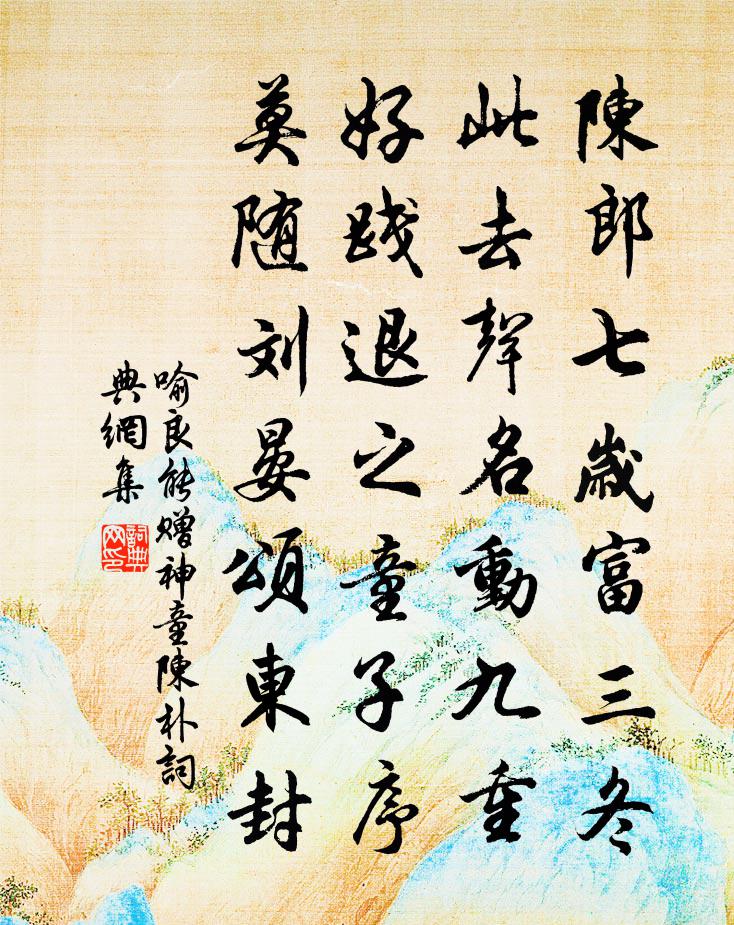 陳郎七歲富三冬
此去聲名動九重
好践退之童子序
莫随刘晏頌東封
喻良能赠神童陳朴詞
典網集
詞典
网印